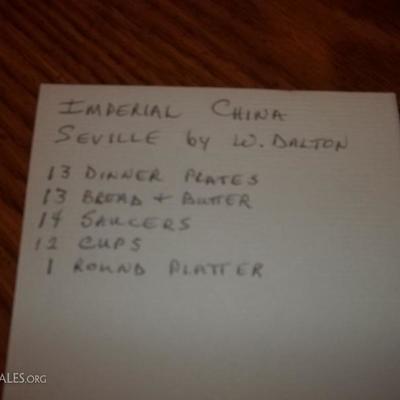 IMPERIAL CHINA
SEVILLE by W. DALTON
13 DINNER PLATES
13 BREAD + BUTTER
14 SAUCERS
12 CUPS
1 ROUND PLATTER
ALES.ORG